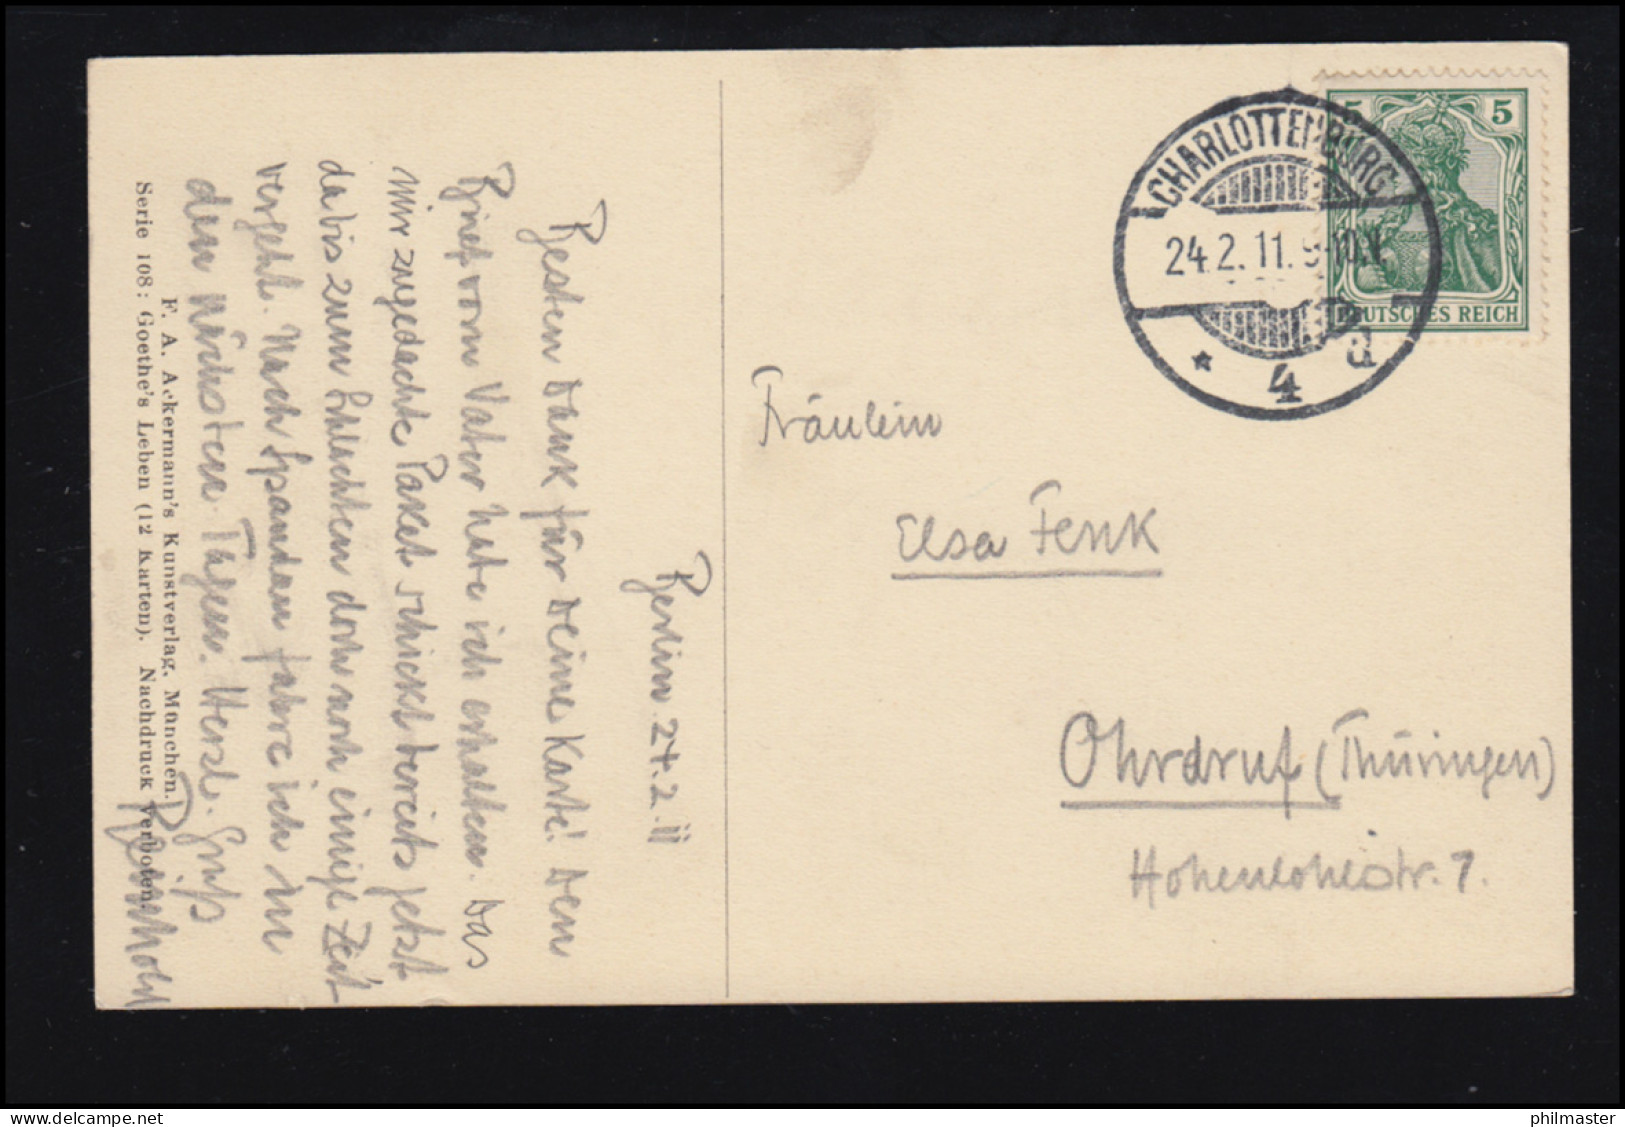 Berlin 24.2.11
Besten Dank für Deine Karte! Den
Brief vom Vater habe ich erhalten. Das
mir zugedachte Paket schickt bereits jetzt
da bis zum Schlachten doch noch einige Zeit
vergeht. Nach Spandau fahre ich in
den nächsten Tagen. Herzl. Gruß
Reinhold
F. A. Ackermann's Kunstverlag, München.
Serie 108: Goethe's Leben (12 Karten). Nachdruck verboten.
CHARLOTTENBURG
24.2.11. 9-10.N.
* 4 d
5 5
DEUTSCHES REICH
Fräulein
Elsa Fenk
Ohrdruf (Thüringen)
Hohenlohestr. 7.
delcampe.net
philmaster